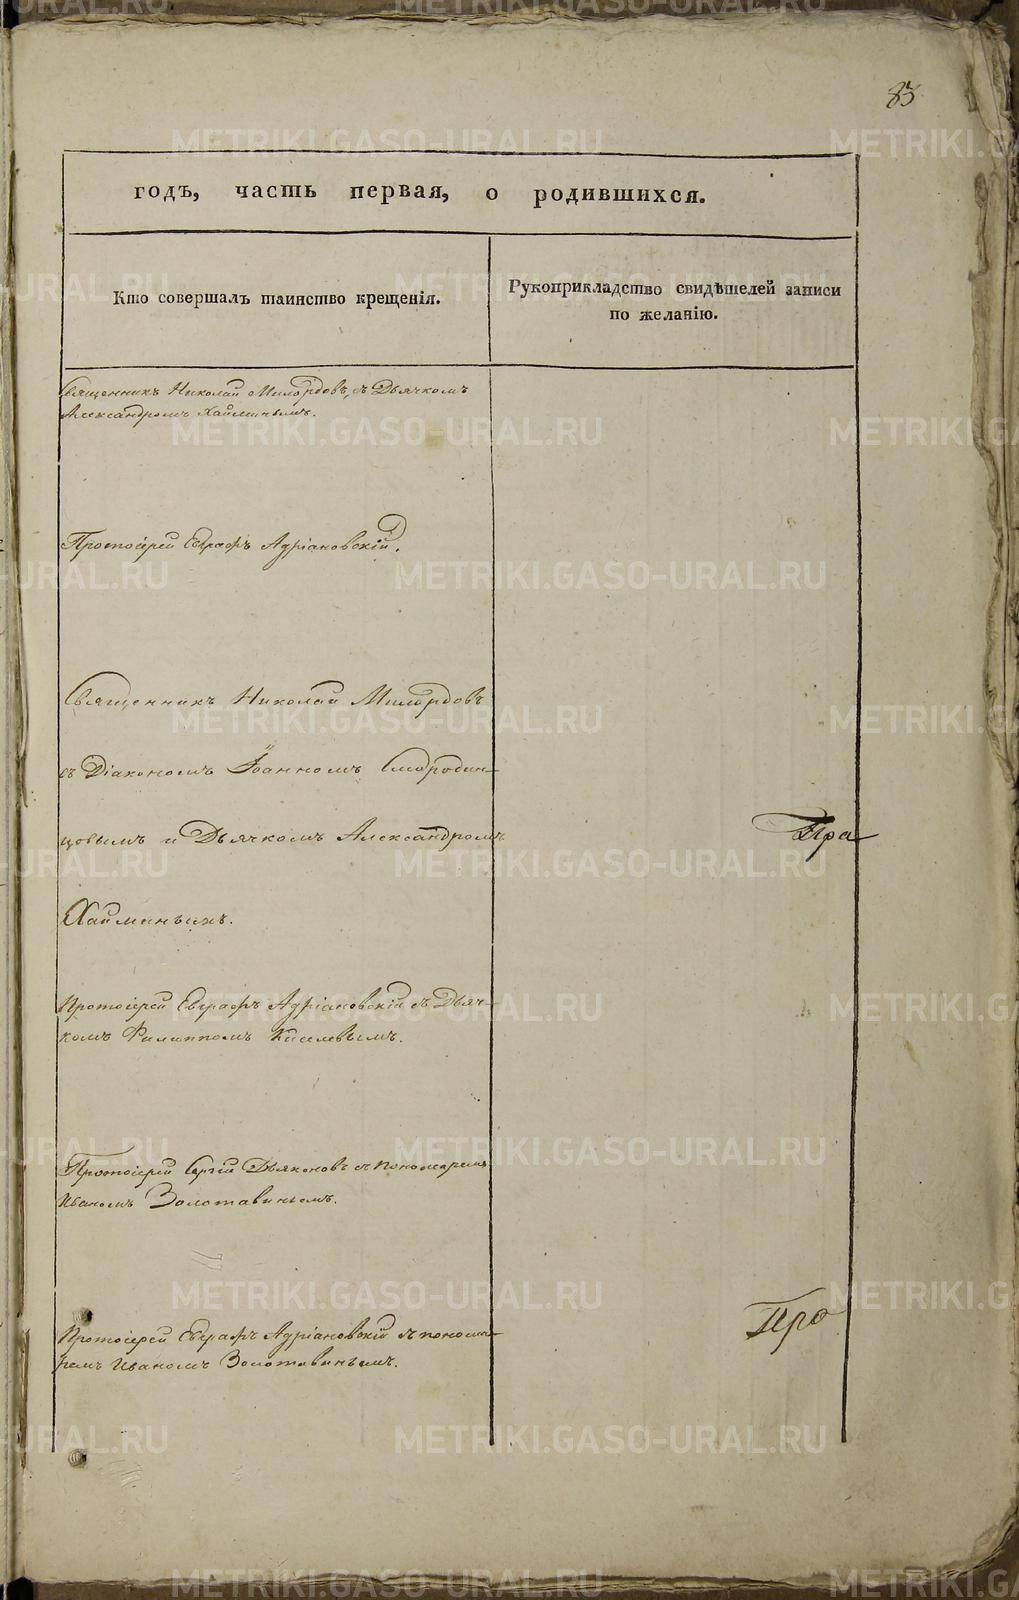 83
годъ, часть первая, о родившихся.
Кто совершалъ таинство крещенія.
Рукоприкладство свидѣтелей записи
по желанію.
Священникъ Николай Милордовъ, съ Дьячкомъ
Александромъ Хайминымъ.
Протоіерей Евграфъ Адріановскій.
Священникъ Николай Милордовъ
съ Діакономъ Іоанномъ Смородин-
цовымъ и Дьячкомъ Александромъ
Пра
Хайминымъ.
Протоіерей Евграфъ Адріановскій съ Дьяч-
комъ Филиппомъ Киселевымъ.
Протоіерей Сергій Дьяконовъ съ пономаремъ
Иваномъ Золотавинымъ.
Про
Протоіерей Евграфъ Адріановскій съ понома-
ремъ Иваномъ Золотавинымъ.
METRIKI.GASO-URAL.RU